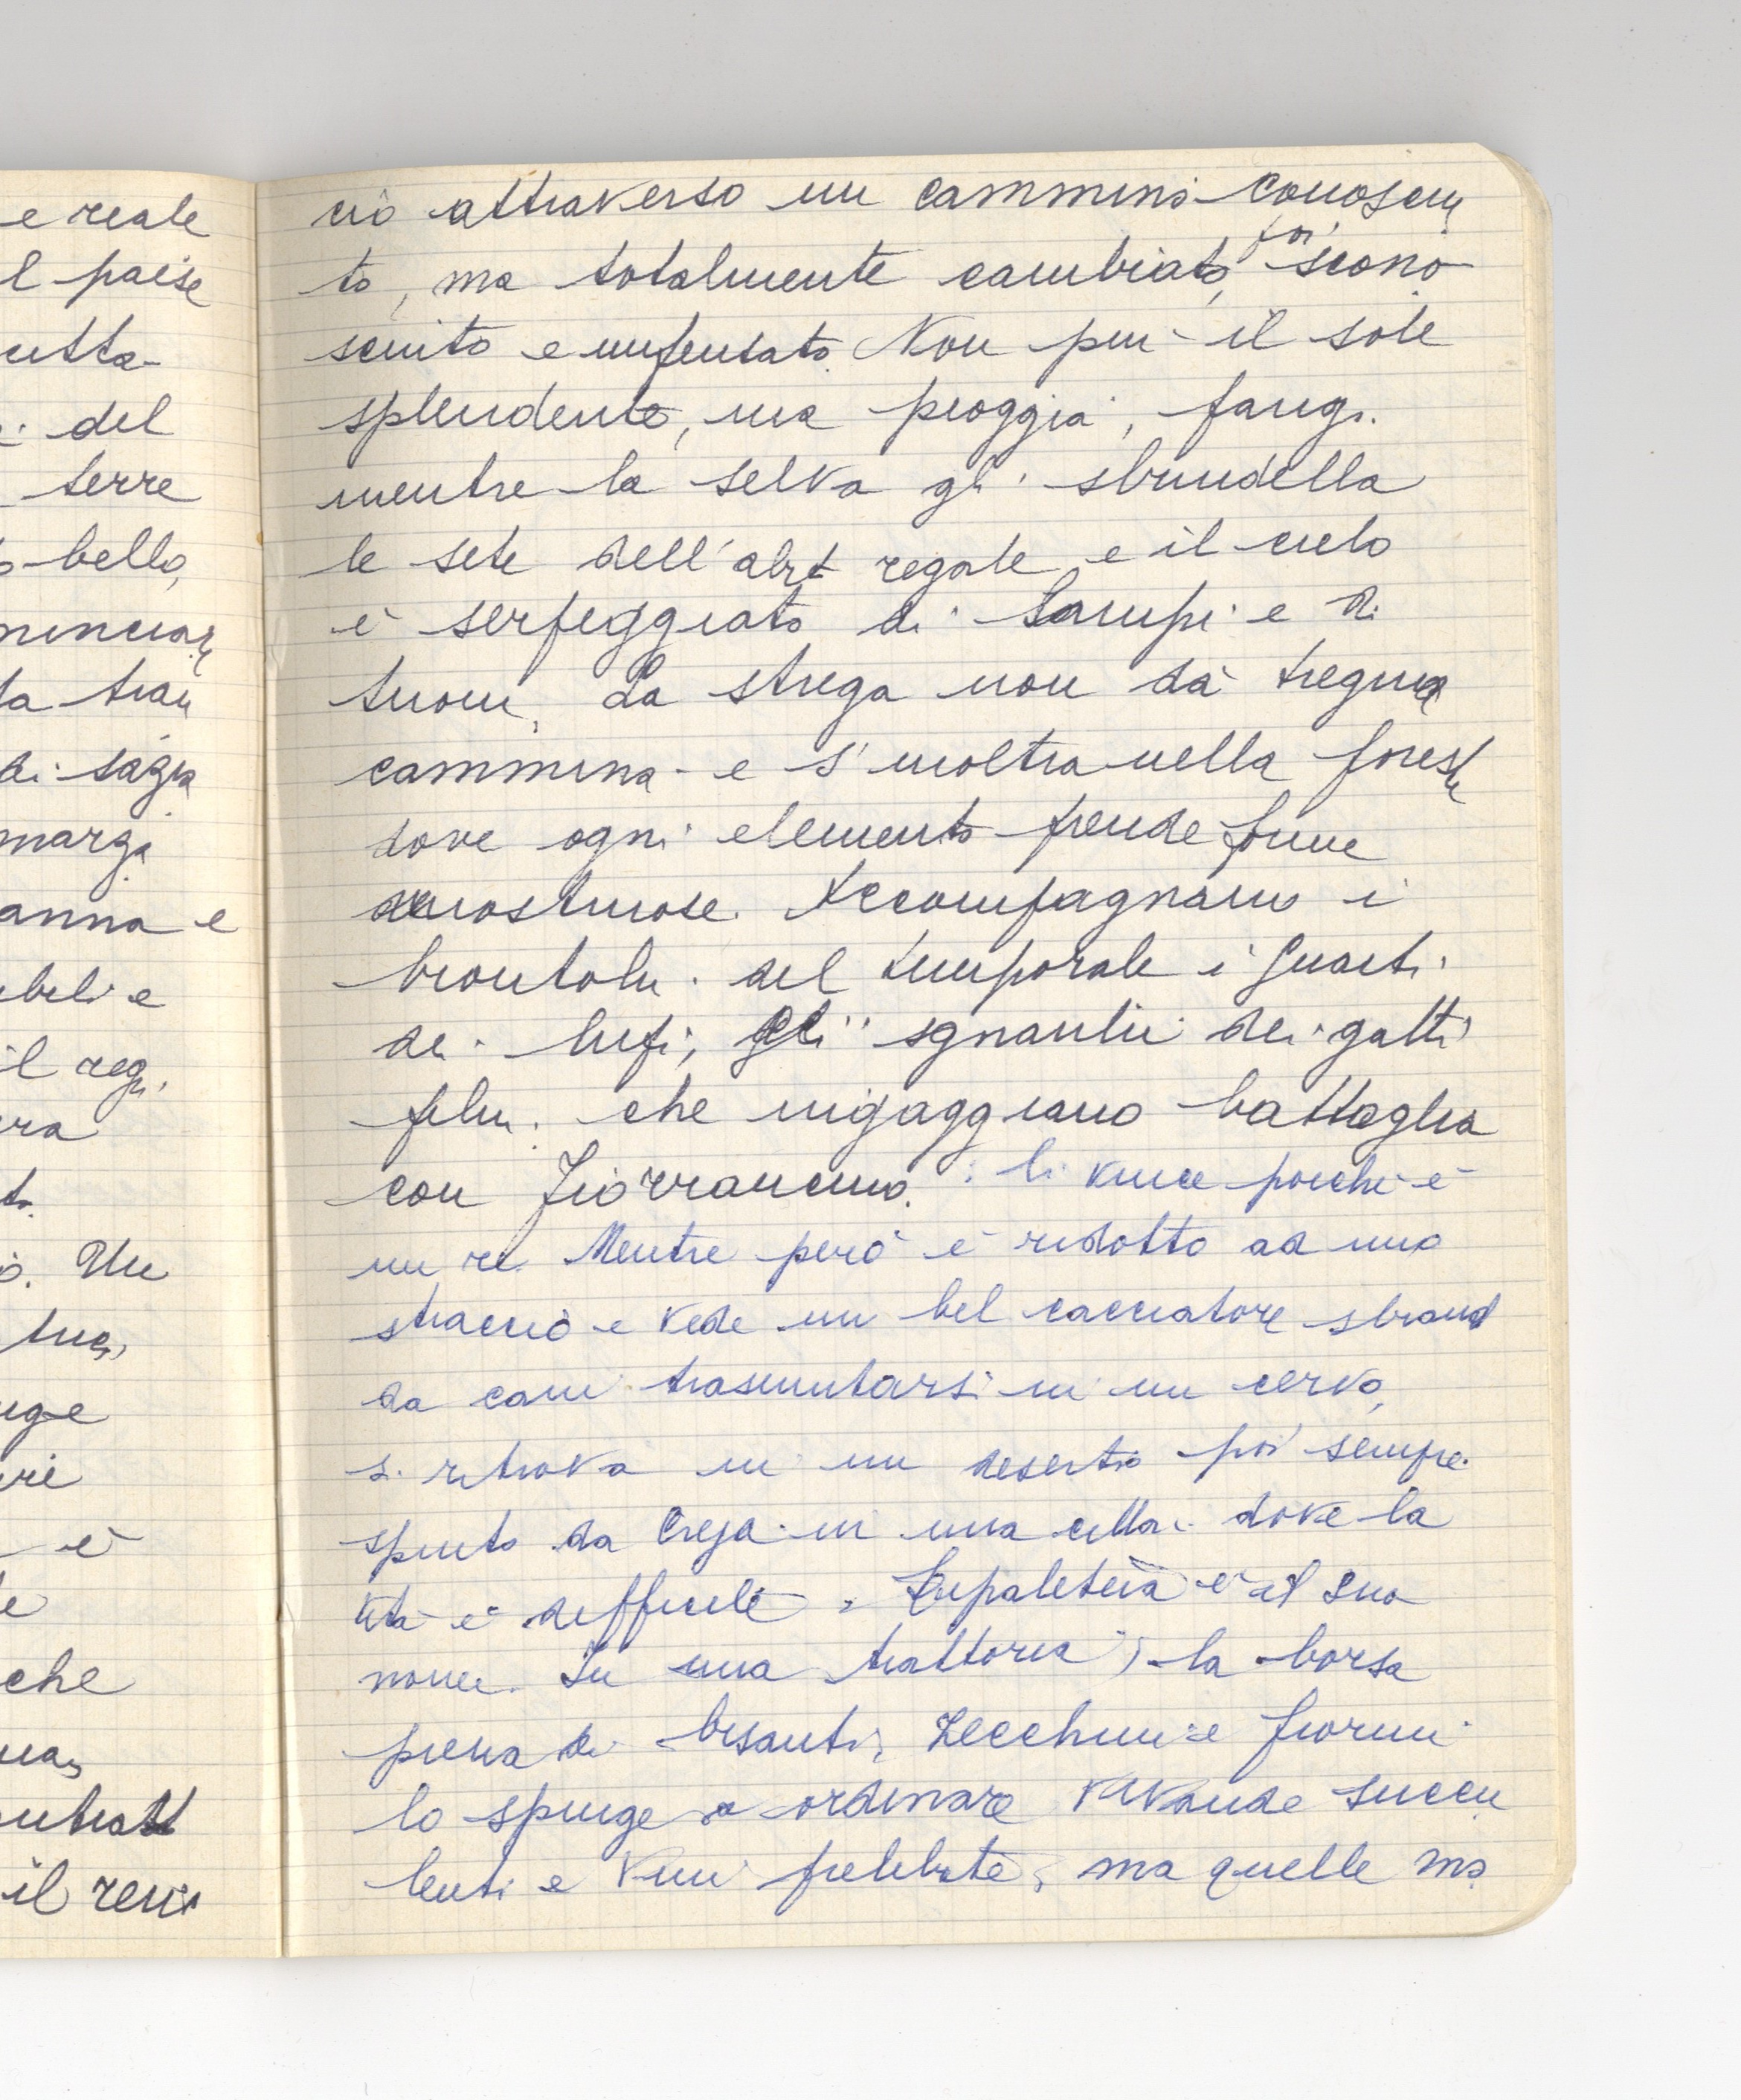 e reale
l paese
utta
del
terre
bello,
minciar
la tran
di sagg
marga
anna e
beli e
il reg
ra
to.
o. Un
uge
rie
è
e
che
il reni
ciò attraverso un cammino conosciu
to, ma totalmente cambiato, poi scono
sciuto e impensato. Non più il sole
splendente, ma pioggia, fango.
mentre la selva gli sbrindella
le sete dell'abit regale e il cielo
è serpeggiato di lampi e di
tuoni. La strega non dà tregua
cammina e s'inoltra nella forest
dove ogni elemento prende forme
mostruose. Accompagnano i
brontolii del temporale i guaiti
dei lupi, gli sgnaulii dei gatti
felini che ingaggiano battaglia
con Fiorrancino. : li vince poiché è
un re. Mentre però è ridotto ad uno
straccio e vede un bel cacciatore sbrand
da cani trasmutarsi in un cervo,
si ritrova in un deserto poi sempre
spinto da Crega in una città dove la
vita è difficile. Lupaleteia è il suo
nome. In una trattoria, la borsa
piena di bisanti, zecchini e fiorini
lo spinge a ordinare vivande succu
lenti e vini prelibate, ma quelle mo